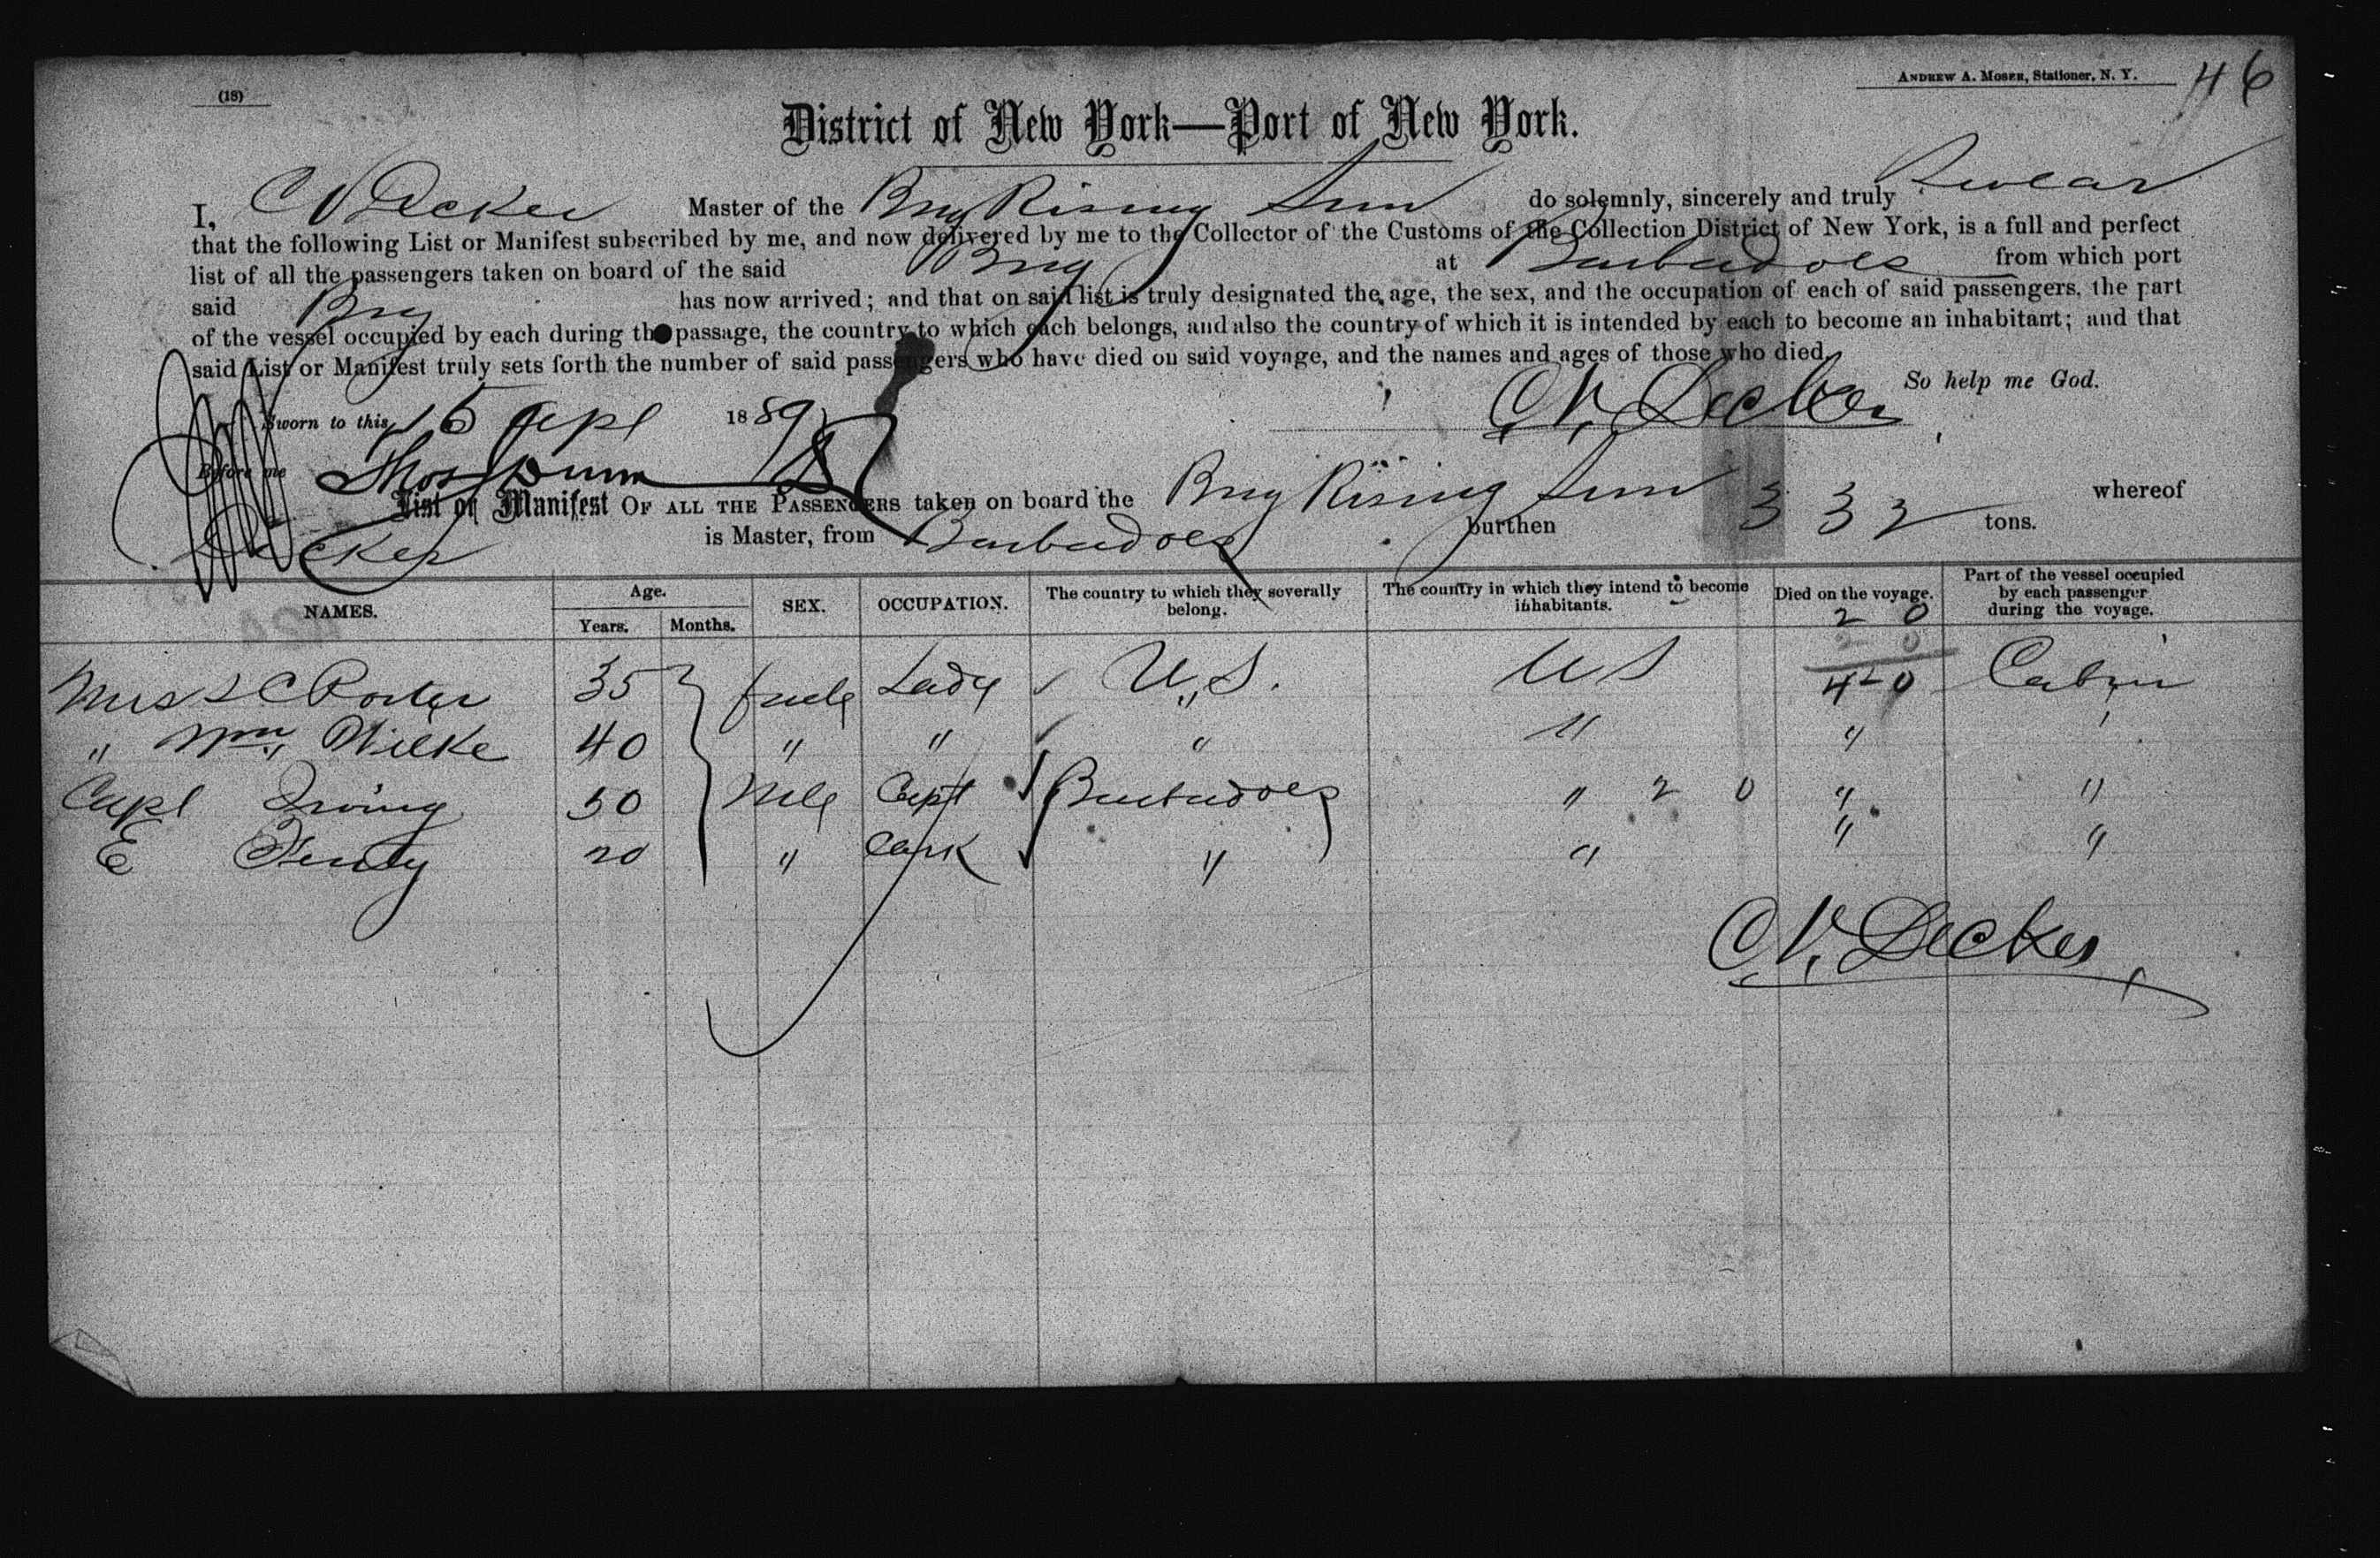 (18)
ANDREW A. MOSER, Stationer, N. Y.
46
District of New York—Port of New York.
I, C V Decker Master of the Brig Rising Sun do solemnly, sincerely and truly Swear
that the following List or Manifest subscribed by me, and now delivered by me to the Collector of the Customs of the Collection District of New York, is a full and perfect
list of all the passengers taken on board of the said Brig at Barbadoes from which port
said Brig has now arrived; and that on said list is truly designated the age, the sex, and the occupation of each of said passengers, the part
of the vessel occupied by each during the passage, the country to which each belongs, and also the country of which it is intended by each to become an inhabitant; and that
said List or Manifest truly sets forth the number of said passengers who have died on said voyage, and the names and ages of those who died.
So help me God.
Sworn to this 15 Apl 1889
C. V. Decker
Before me Thos Dunn
List or Manifest OF ALL THE PASSENGERS taken on board the Brig Rising Sun whereof
Decker is Master, from Barbadoes burthen 332 tons.
NAMES. Age. Years. Months. SEX. OCCUPATION. The country to which they severally belong. The country in which they intend to become inhabitants. Died on the voyage. Part of the vessel occupied by each passenger during the voyage.
2 0
2 0
4 0
Mrs L C Porter 35 fmle Lady U.S. U S Cabin
" Wm Wilke 40 " " " " "
Capt Irving 50 Mle Capt Barbadoes " 2 0 " "
E 20 " Clark " " " "
C. V. Decker